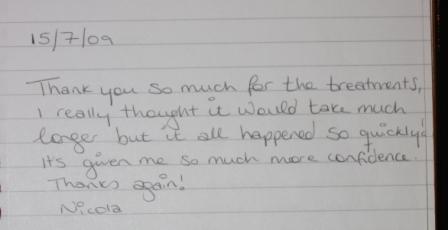 15/7/09
Thank you so much for the treatments,
I really thought it would take much
longer but it all happened so quickly!
Its given me so much more confidence.
Thanks again!
Nicola